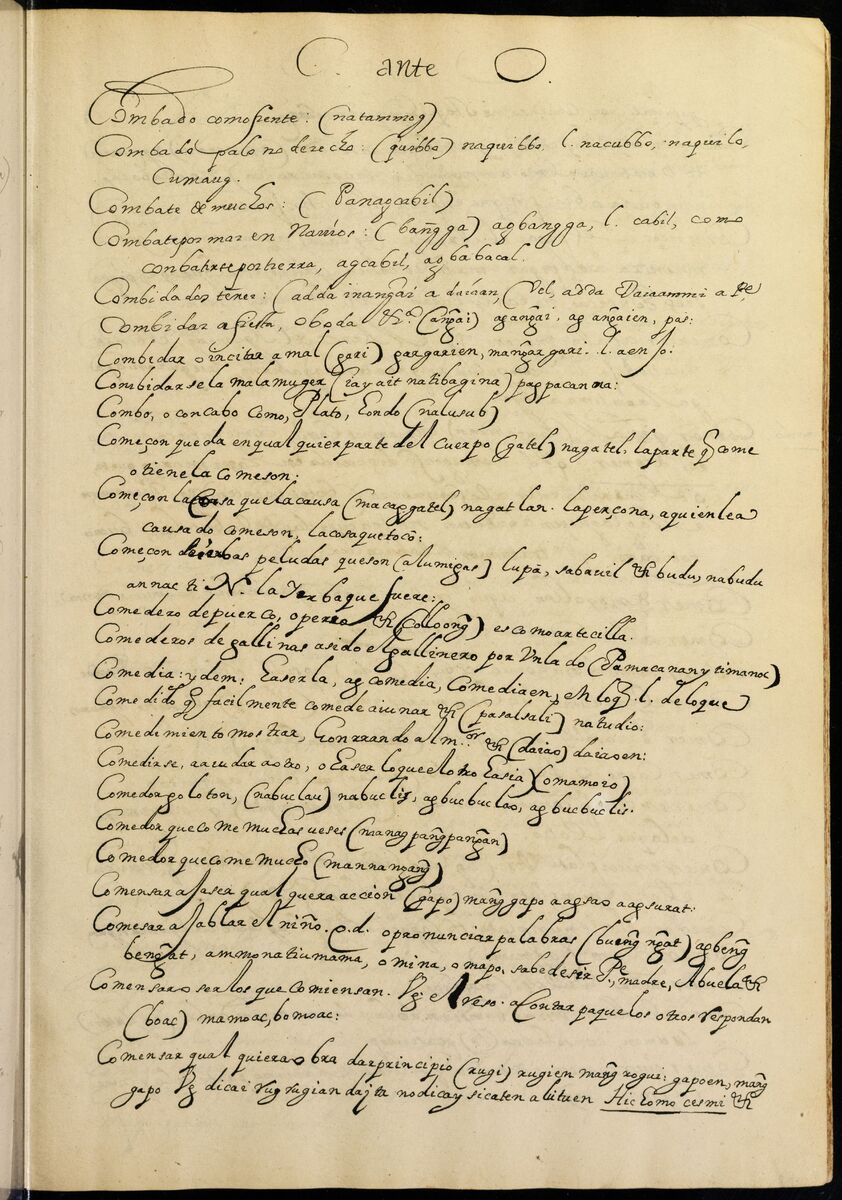 C. ante O.
Combado como fiente: (natammog)
Combado palo no derecho: (quibbo) naquibbo, l. nacubbo, naquilo,
Cumaug.
Combate de muchos: (Panagcabil)
Combate por mar en Navios: (bang̃ga) agbangga, l. cabil, como
conbatirse por tierra, agcabil, agbabacal.
Combidados tener: (adda inang̃ai a daiaan, (Vel, adda Daiaammi a pe
Combidar a fiesta, o boda &c.ª (ang̃ai) agang̃ai, ag ang̃aien, pas:
Combidar o incitar a mal (gari) gargarien, mang̃argari. l. aenso.
Combidarse la mala muger (iayait natibagina) pagpacanna:
Combo, o concabo como, Plato, hondo (nalusub)
Começon que da en qual quier parte del cuerpo (gatel) nagatel, la parte q̃ come
o tiene la comeson:
Começon la cosa que la causa (macaggatel) nagatlan. la perçona, a quien lea
causado comeson, la cosa que tocó:
Começon de ierbas peludas que son (alumigas) lupa, sabauil &c budu, nabudu
annac ti N. la Yerba que fuere:
Comedero de puerco, o perro &c (colloong̃) es como artecilla.
Comederos de gallinas asido el gallinero por Un lado (Pamacanan y timanoc)
Comedia: ydem: haserla, ag comedia, Comediaen, el loq̃. l. de loque
Comedido q̃ facilmente comede aiunar &c (pasalsali) natudio:
Comedimiento mostrar, honrrando al m.ᵒʳ &c (daiao) daiaoen:
Comedirse, a aiudar a otro, o haser lo que el otro hasia (omamoio)
Comedor goloton, (nabuclau) nabuclis, agbucbuclao, agbucbuclis.
Comedor que come muchas veses (manag pang̃pang̃an)
Comedor que come mucho (mannang̃ang̃)
Comensar a haser qual quera accion (gapo) mang̃gapo aagsao aagsurat:
Comesar a hablar el niño. q.d. o pronunciar palabras (bueng̃ ng̃at) agbeng̃
beng̃at, ammonatiumama, o mina, o mapo, sabe desir P.ᵉ, madre, Abuela &c
Comensar o ser los que comiensan. Vg: el reso. a Contar paque los otros respondan
(boac) mamoac, bomoac:
Comensar qual quiera obra dar principio (rugi) rugien mang̃rogui: gapoen, mang̃
gapo Vg dicai rugrugian dajta nodicay sicaten a lituen Hic homo cesmi &c